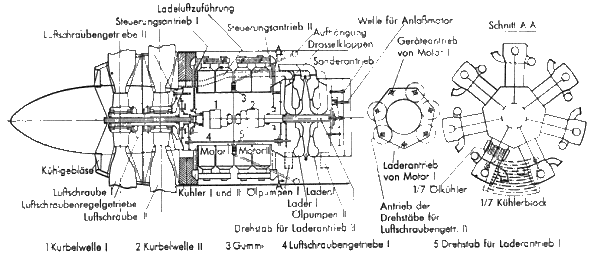 Ladeluftzuführung
Steuerungsantrieb I
Steuerungsantrieb II
Luftschraubengetriebe II
Aufhängung
Drosselklappen
Sonderantrieb
Welle für Anlaßmotor
Geräteantrieb
von Motor I
Schnitt A-A
A
1
2
3
4
5
Motor I
Motor II
A
Kühlgebläse
Luftschraube I
Luftschraubenregelgetriebe
Luftschraube II
Kühler I und II
Ölpumpen I
Lader I
Lader II
Ölpumpen II
Drehstab für Laderantrieb II
Laderantrieb
von Motor I
Antrieb der
Drehstäbe für
Luftschraubengetr. II
1/7 Ölkühler
1/7 Kühlerblock
1 Kurbelwelle I
2 Kurbelwelle II
3 Gummi
4 Luftschraubengetriebe I
5 Drehstab für Laderantrieb I